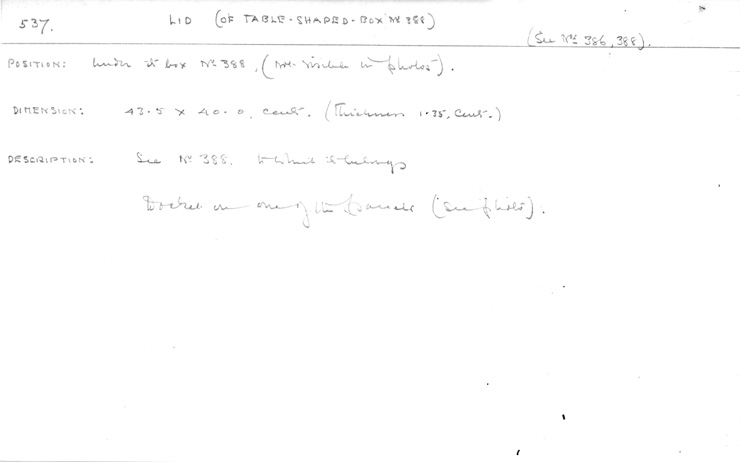 537. LID (OF TABLE-SHAPED-BOX Nº 388)
(See Nºs 386, 388).
POSITION: Under its box Nº 388, (not visible in photos).
DIMENSION: 43.5 × 40.0, cent. (Thickness 1.35, Cent.)
DESCRIPTION: See Nº 388. to which it belongs
Docket on one of the panels (see photo).